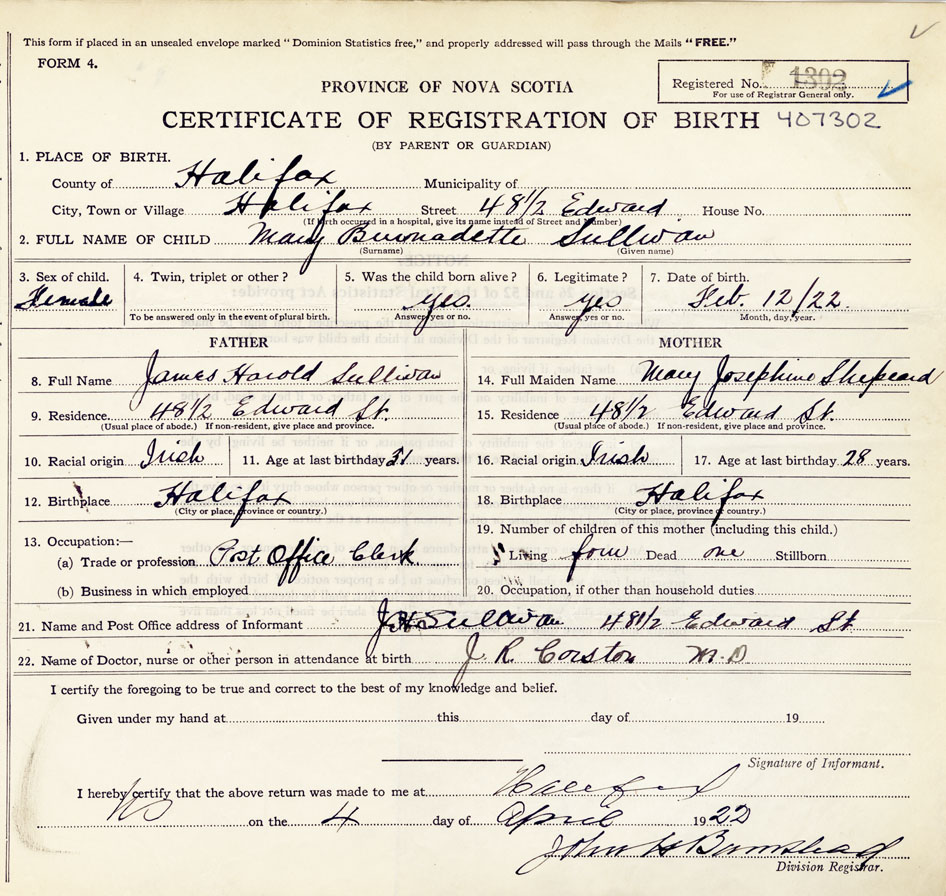 This form if placed in an unsealed envelope marked "Dominion Statistics free," and properly addressed will pass through the Mails "FREE."
FORM 4.
Registered No. 1302
For use of Registrar General only.
PROVINCE OF NOVA SCOTIA
CERTIFICATE OF REGISTRATION OF BIRTH 407302
(BY PARENT OR GUARDIAN)
1. PLACE OF BIRTH.
County of Halifax Municipality of
City, Town or Village Halifax Street 48 1/2 Edward House No.
(If birth occurred in a hospital, give its name instead of Street and Number)
2. FULL NAME OF CHILD Mary Bernadette Sullivan
(Surname) (Given name)
3. Sex of child. 4. Twin, triplet or other? 5. Was the child born alive? 6. Legitimate? 7. Date of birth.
Female yes. yes Feb. 12/22.
To be answered only in the event of plural birth. Answer, yes or no. Answer, yes or no. Month, day, year.
FATHER MOTHER
8. Full Name James Harold Sullivan 14. Full Maiden Name Mary Josephine Sheppard
9. Residence. 48 1/2 Edward St. 15. Residence 48 1/2 Edward St.
(Usual place of abode.) If non-resident, give place and province. (Usual place of abode.) If non-resident, give place and province.
10. Racial origin Irish 11. Age at last birthday 31 years. 16. Racial origin Irish 17. Age at last birthday 28 years.
12. Birthplace Halifax 18. Birthplace Halifax
(City or place, province or country.) (City or place, province or country.)
13. Occupation:— 19. Number of children of this mother (including this child.)
(a) Trade or profession Post Office Clerk Living four Dead one Stillborn
(b) Business in which employed 20. Occupation, if other than household duties
21. Name and Post Office address of Informant J.H. Sullivan 48 1/2 Edward St
22. Name of Doctor, nurse or other person in attendance at birth J. R. Corston M.D
I certify the foregoing to be true and correct to the best of my knowledge and belief.
Given under my hand at this day of 19
Signature of Informant.
I hereby certify that the above return was made to me at Halifax
NS on the 4 day of April 1922
John H Barnstead
Division Registrar.